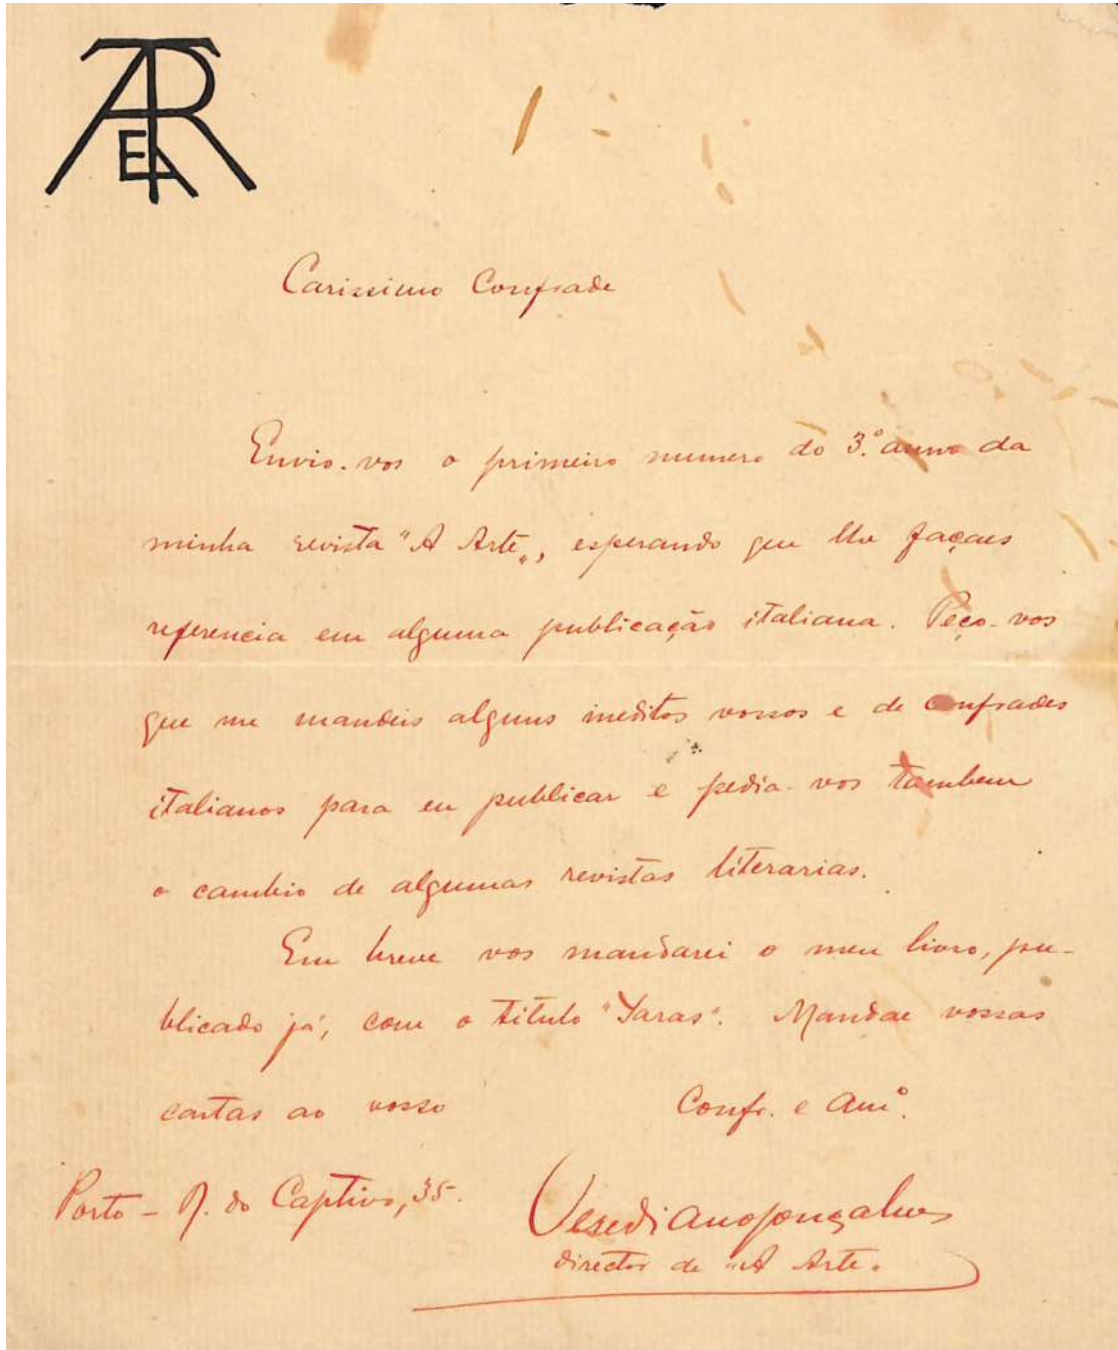 A ARTE
Carissimo Confrade
Envio-vos o primeiro numero do 3.º anno da
minha revista "A Arte", esperando que lhe façaes
referencia em alguma publicação italiana. Peço-vos
que me mandeis alguns ineditos vossos e de confrades
italianos para eu publicar e pedia-vos tambem
o cambio de algumas revistas literarias.
Em breve vos mandarei o meu livro, pu-
blicado já, com o titulo "Yaras". Mandae vossas
cartas ao vosso
Confr. e Am.º
Porto - R. do Captivo, 35.
Gonçalves
director de "A Arte"